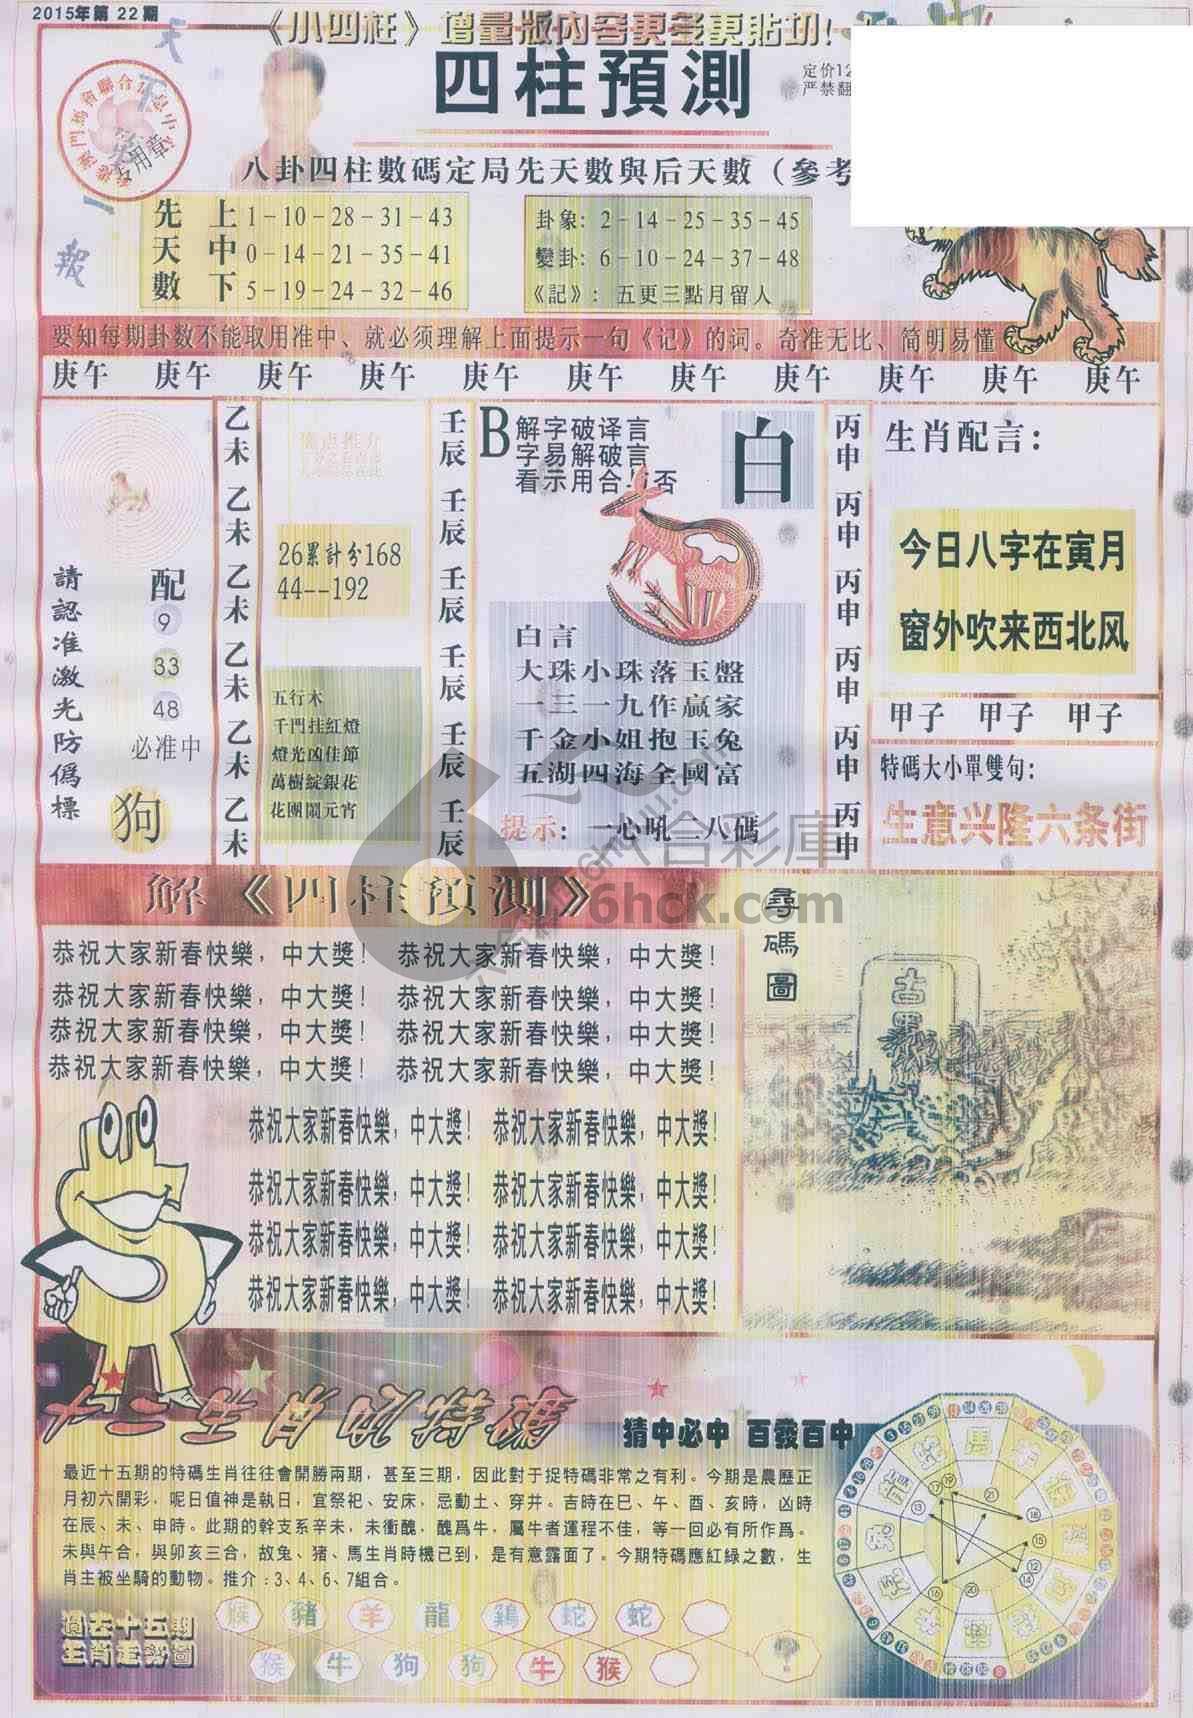 2015年第 22 期
《小四柱》增量版內容更多更貼切!
四柱預測
定价12
严禁翻
天下第一報
八卦四柱數碼定局先天數與后天數（參考
先天數
上 1－10－28－31－43
中 0－14－21－35－41
下 5－19－24－32－46
卦象: 2－14－25－35－45
變卦: 6－10－24－37－48
《記》: 五更三點月留人
要知每期卦数不能取用准中、就必须理解上面提示一句《记》的词。奇准无比、简明易懂
庚午 庚午 庚午 庚午 庚午 庚午 庚午 庚午 庚午 庚午 庚午
請認准激光防僞標
配
9
33
48
必准中
狗
乙未 乙未 乙未 乙未 乙未 乙未
26累計分168
44--192
五行木
千門挂紅燈
燈光凶佳節
萬樹綻銀花
花團鬧元宵
壬辰 壬辰 壬辰 壬辰 壬辰 壬辰
B 解字破译言
字易解破言
看示用合与否
白
白言
大珠小珠落玉盤
一三一九作贏家
千金小姐抱玉兔
五湖四海全國富
提示: 一心吼二八碼
丙申 丙申 丙申 丙申 丙申 丙申
生肖配言:
今日八字在寅月
窗外吹来西北风
甲子 甲子 甲子
特碼大小單雙句:
生意兴隆六条街
六合彩庫
6hck.com
解《四柱預測》
恭祝大家新春快樂，中大獎! 恭祝大家新春快樂，中大獎!
恭祝大家新春快樂，中大獎! 恭祝大家新春快樂，中大獎!
恭祝大家新春快樂，中大獎! 恭祝大家新春快樂，中大獎!
恭祝大家新春快樂，中大獎! 恭祝大家新春快樂，中大獎!
恭祝大家新春快樂，中大獎! 恭祝大家新春快樂，中大獎!
恭祝大家新春快樂，中大獎! 恭祝大家新春快樂，中大獎!
恭祝大家新春快樂，中大獎! 恭祝大家新春快樂，中大獎!
恭祝大家新春快樂，中大獎! 恭祝大家新春快樂，中大獎!
尋碼圖
古墨
猜中必中 百發百中
最近十五期的特碼生肖往往會開勝兩期，甚至三期，因此對于捉特碼非常之有利。今期是農歷正
月初六開彩，呢日值神是執日，宜祭祀、安床，忌動土、穿井。吉時在巳、午、酉、亥時，凶時
在辰、未、申時。此期的幹支系辛未，未衝醜，醜爲牛，屬牛者運程不佳，等一回必有所作爲。
未與午合，與卯亥三合，故兔、猪、馬生肖時機已到，是有意露面了。今期特碼應紅緑之數，生
肖主被坐騎的動物。推介：3、4、6、7組合。
過去十五期
生肖走勢圖
猴 豬 羊 龍 鷄 蛇 蛇
猴 牛 狗 狗 牛 猴 ?